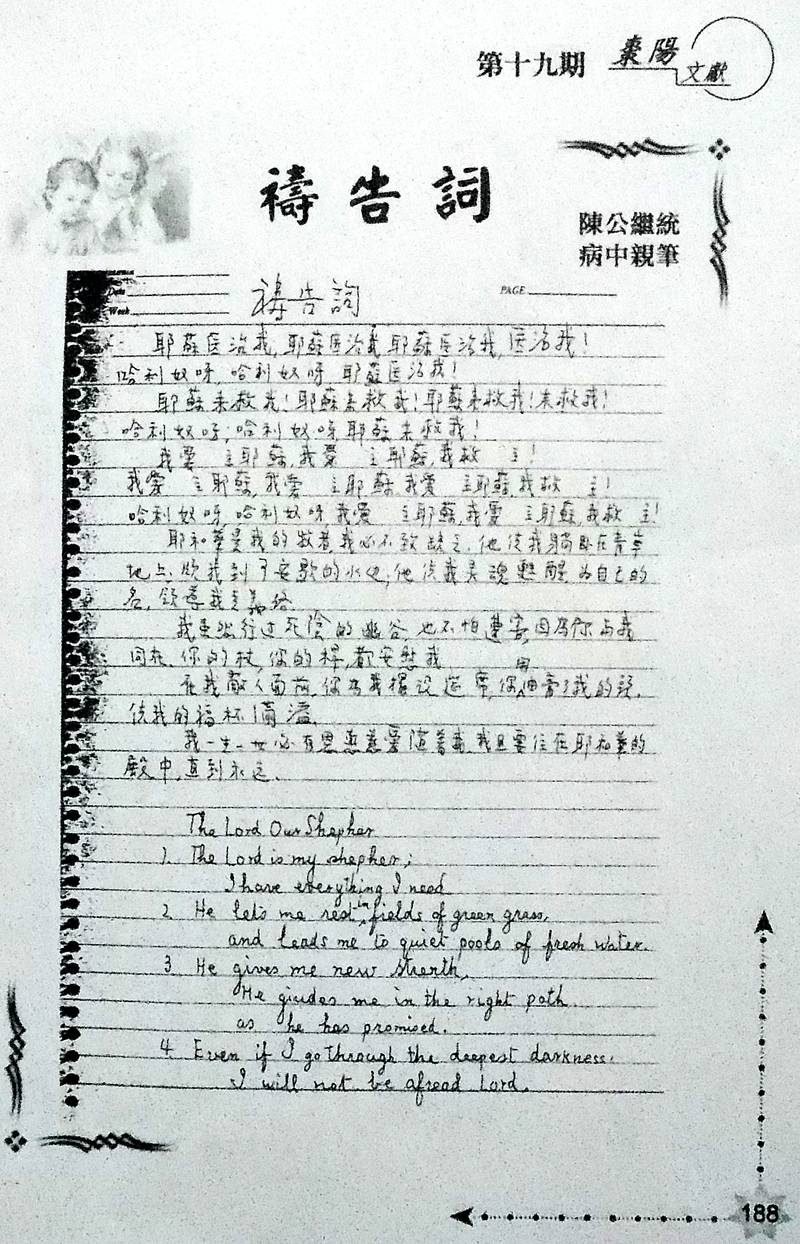 第十九期 棗陽
文獻
禱告詞
陳公繼統
病中親筆
Date
Week
PAGE
禱告詞
耶蘇医治我,耶蘇医治我耶蘇医治我,医治我!
哈利奴呀,哈利奴呀 耶蘇医治我!
耶蘇來救我!耶蘇來救我!耶蘇來救我!來救我!
哈利奴呀,哈利奴呀耶蘇來救我!
我愛 主耶蘇,我愛 主耶蘇,我救 主!
我愛 主耶蘇,我愛 主耶蘇,我愛 主耶蘇,我救 主!
哈利奴呀,哈利奴呀,我愛 主耶蘇,我愛 主耶蘇,我救 主!
耶和華是我的牧者,我必不致缺乏,他使我躺臥在青草
地上,領我到可安歇的水边;他使我灵魂甦醒,為自己的
名,領導我走義路.
我虽然行过死陰的幽谷,也不怕遭害,因為你与我
同在,你的杖,你的桿,都安慰我
在我敵人面前,你為我擺设筵席,你用油膏了我的頭,
使我的福杯滿溢.
我一生一世必有恩惠慈愛隨著我,我且要住在耶和華的
殿中,直到永远.
The Lord Our Shepher
1. The Lord is my shepher;
I have everything I need
2. He lets me rest in fields of green grass,
and leads me to quiet pools of fresh water.
3. He gives me new strenth,
He giudes me in the right path
as he has promised.
4. Even if I go through the deepest darkness.
I will not be afread Lord.
188